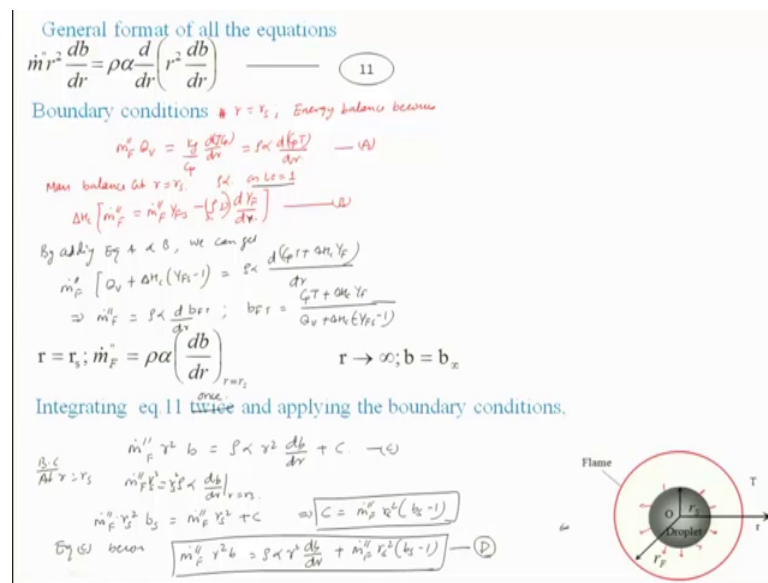 General format of all the equations
ṁ″r² db/dr = ρα d/dr (r² db/dr) ——— 11
Boundary conditions r = rs, Energy balance becomes
ṁ″F Qv = Kg/Cp d(TCp)/dr = ρα d(CpT)/dr —(A)
Mass balance at r = rs. ρα as Le = 1
ΔHc [ṁ″F = ṁ″F YFs − (ρD) dYF/dr] ———
By adding Eq A & B, we can get
ṁ″F [Qv + ΔHc (YFs−1)] = ρα d(CpT + ΔHc YF)/dr
⇒ ṁ″F = ρα d bFT/dr ; bFT = CpT + ΔHc YF / Qv + ΔHc (YFs−1)
r = rs; ṁ″F = ρα (db/dr) r=rs r → ∞; b = b∞
once
Integrating eq.11 twice and applying the boundary conditions.
ṁ″F r² b = ρα r² db/dr + C —(C)
B.C
At r = rs ṁ″F rs² = rs² ρα db/dr | r=rs
ṁ″F rs² bs = ṁ″F rs² + C ⇒ C = ṁ″F rs² (bs−1)
Eq (C) becom ṁ″F r² b = ρα r² db/dr + ṁ″F rs² (bs−1) —(D)
Flame
T
O rs
Droplet
r
rF